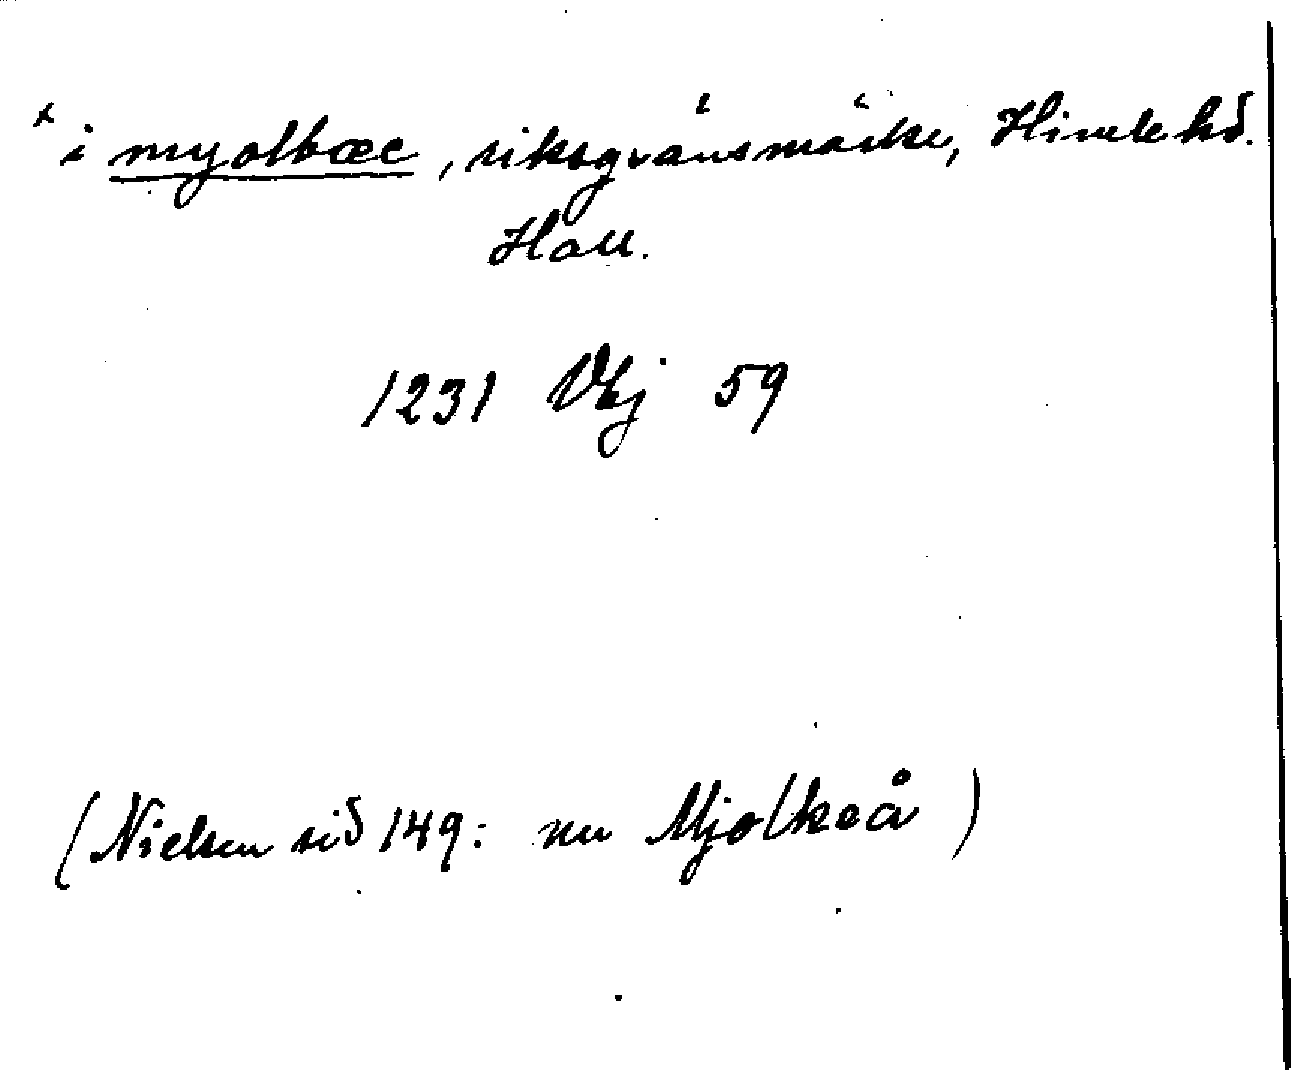 x i myolbæc, riksgränsmärke, Himle hd.
Hall.
1231 VEj 59
(Nielsen sid 149: nu Mjolkeå)